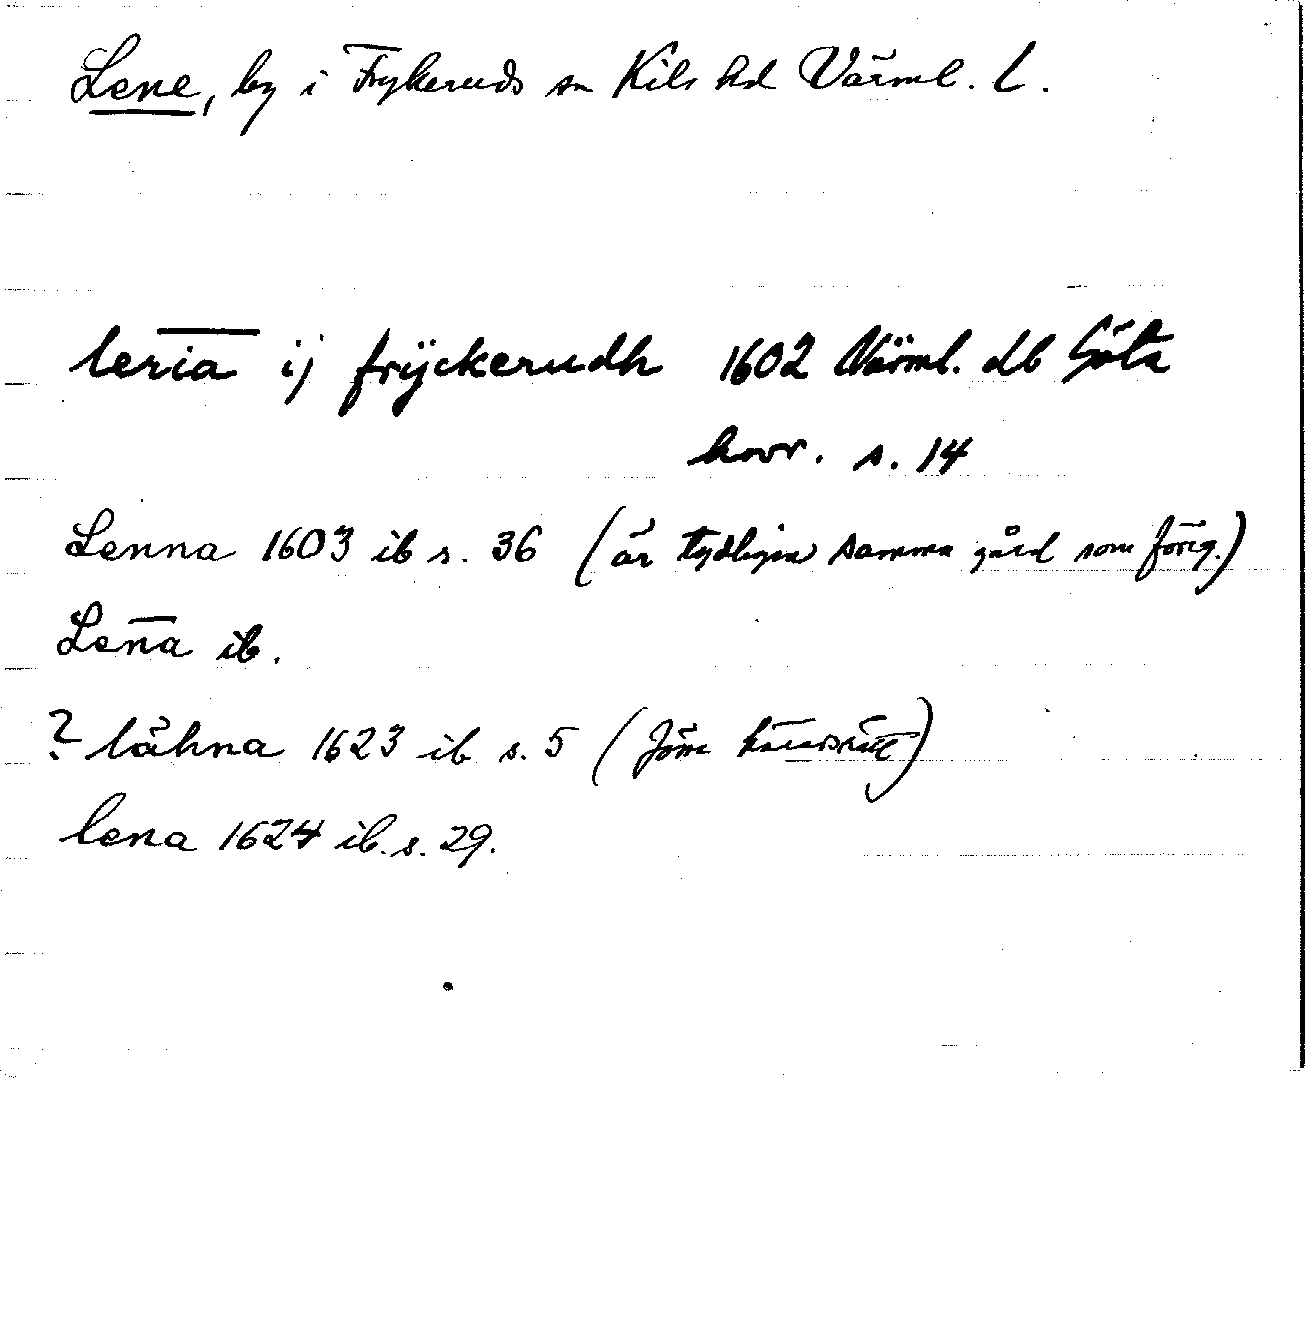 Lene, by i Frykeruds sn Kils hd Värml. L.
leria ij frÿckerudh 1602 Värml. db Göta
hovr. s. 14
Lenna 1603 ib s. 36 (är tydligen samma gård som föreg.)
Leña ib.
? lähna 1623 ib s. 5 (Jöns häradsrätt)
lena 1624 ib. s. 29.